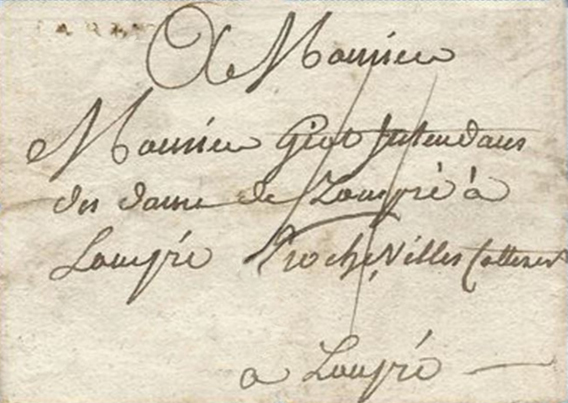 A Monsieur
Monsieur Giot Intendans
des dame de Longpré à
Longpré Proche Villes Cotteret
a Longpré